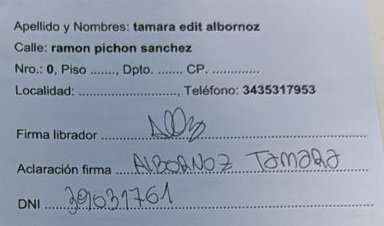 Apellido y Nombres: tamara edit albornoz
Calle: ramon pichon sanchez
Nro.: 0, Piso ......., Dpto. ....... CP. .............
Localidad: ..........................., Teléfono: 3435317953
Firma librador
Aclaración firma ALBORNOZ TAMARA
DNI 29631761